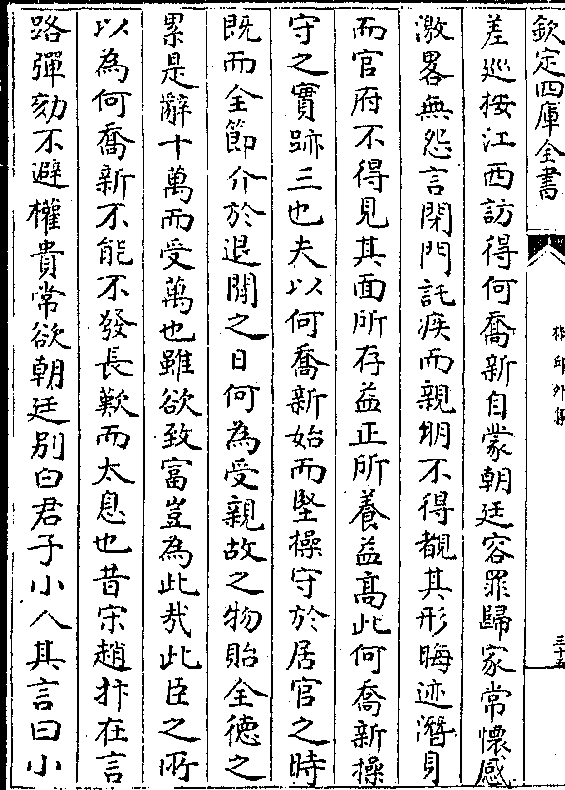 欽定四庫全書
椒邱外集
三十五
差巡按江西訪得何喬新自蒙朝廷容罪歸家常懷感
激畧無怨言閉門託疾而親朋不得覩其形晦迹潛身
而官府不得見其面所存益正所養益髙此何喬新操
守之實跡三也夫以何喬新始而堅操守於居官之時
既而全節介於退閒之日何為受親故之物貽全德之
累是辭十萬而受萬也雖欲致富豈為此㢤此臣之所
以為何喬新不能不發長歎而太息也昔宋趙抃在言
路彈劾不避權貴常欲朝廷别白君子小人其言曰小